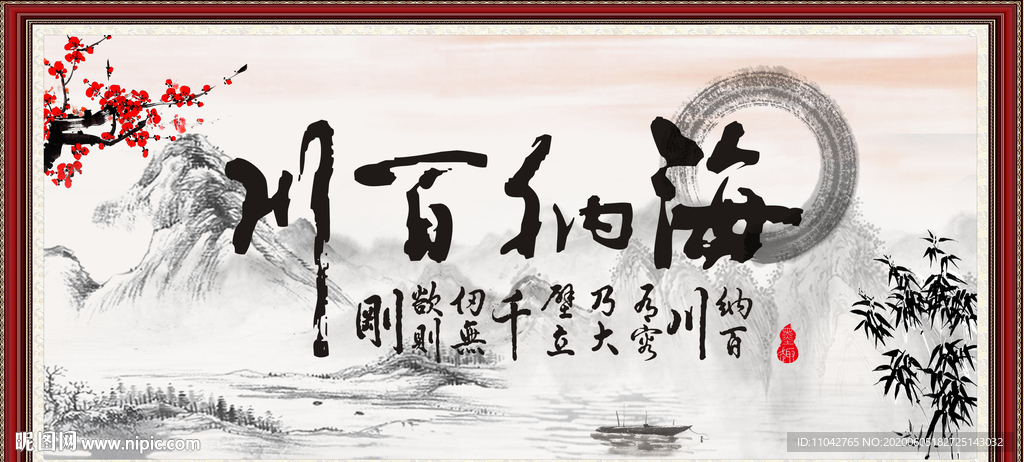 海纳百川
纳百川有容乃大壁立千仞無欲則剛
昵图网 www.nipic.com
ID:11042765 NO:20200605182725143032